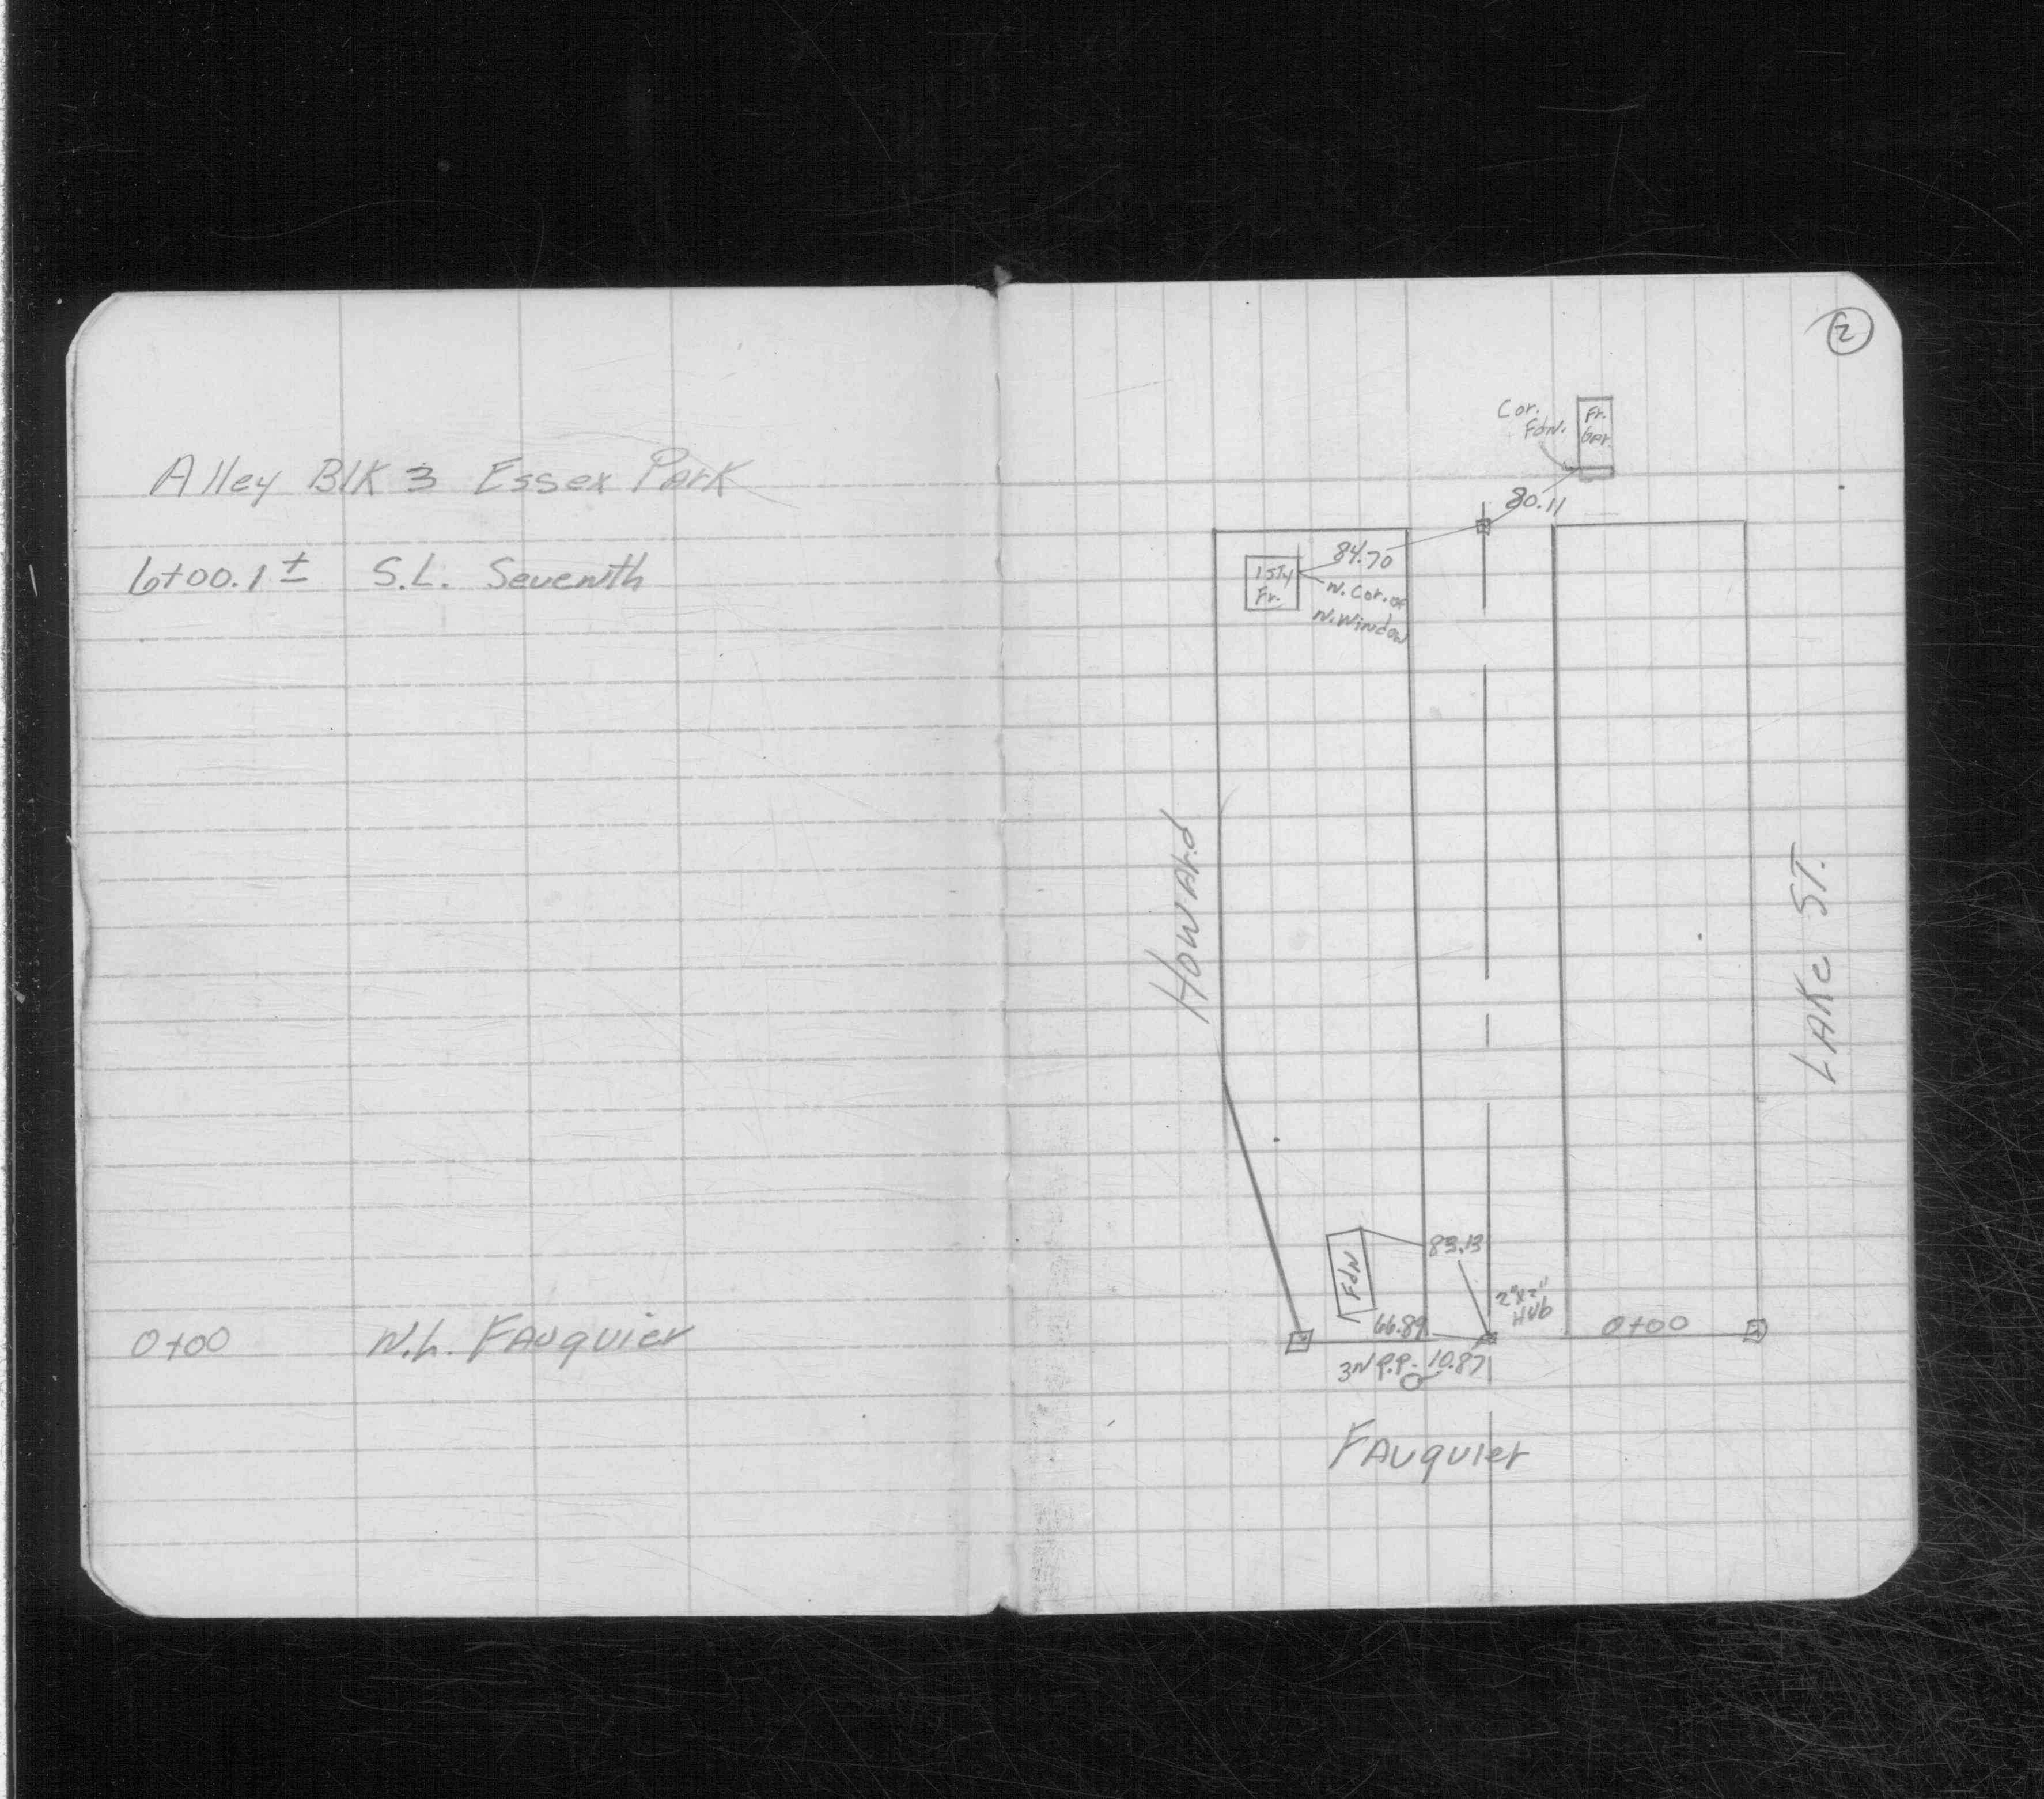 Alley Blk 3 Essex Park
6+00.1± S.L. Seventh
0+00 N.L. Fauquier
2
Cor.
Fdn.
Fr.
Gar.
80.11
84.70
1 Sty
Fr.
N. Cor. of
N. Window
Howard
Lake St.
Fdn
83.13
2"x2"
Hub
66.89
0+00
3N P.P. 10.87
Fauquier